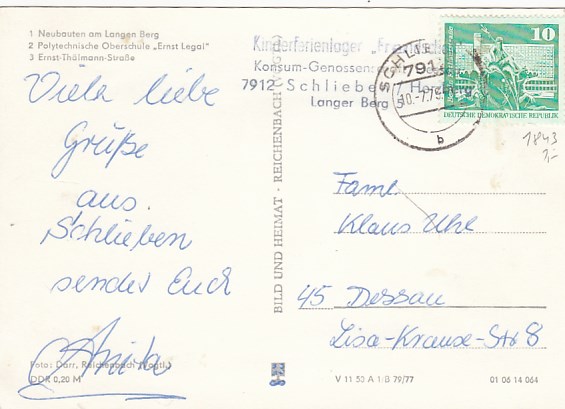 1 Neubauten am Langen Berg
2 Polytechnische Oberschule „Ernst Legal"
3 Ernst-Thälmann-Straße
Viele liebe
Grüße
aus.
Schlieben
sendet Euch
Anita
Foto: Darr, Reichenbach (Vogtl.)
DDR 0,20 M
BILD UND HEIMAT · REICHENBACH (VOGTL)
Kinderferienlager „Freundschaft
Konsum-Genossenschaft
7912 Schlieben
Langer Berg
SCHLIEBEN
7912
10.-7.79
b
10
DEUTSCHE DEMOKRATISCHE REPUBLIK
1843
1,-
Faml.
Klaus Uhl
45 Dessau
Lisa-Krause-Str 8
V 11 50 A 1/B 79/77
01 06 14 064